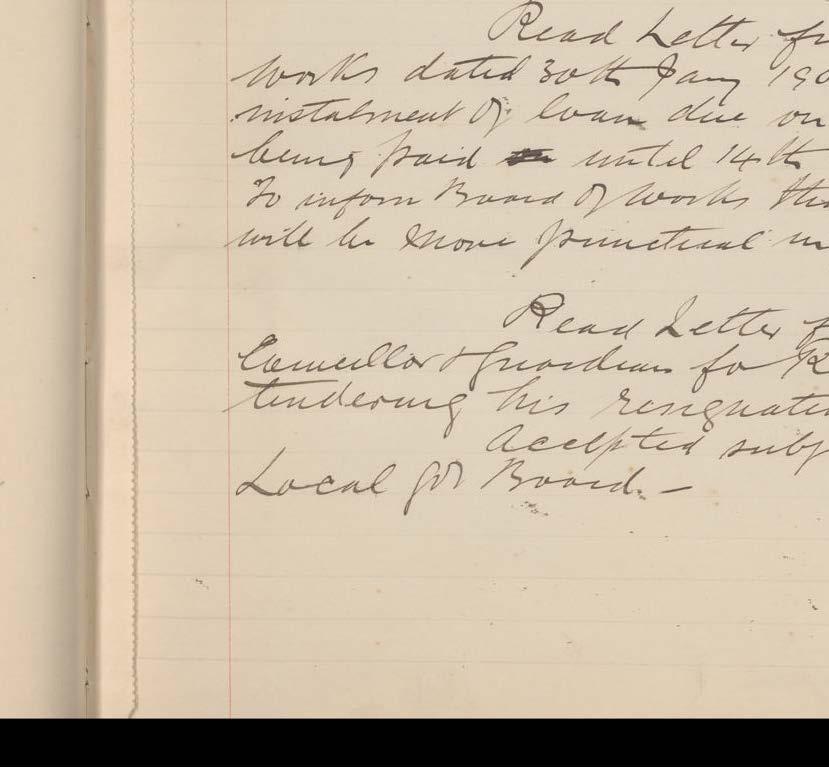 Read Letter fr
Works dated 30th Jany 190
instalment of loan due on
being paid until 14th
To inform Board of Works tha
will be more punctual in
Read Letter f
Councillor & Guardian for R
tendering his resignatio
Accepted subj
Local Got Board. –